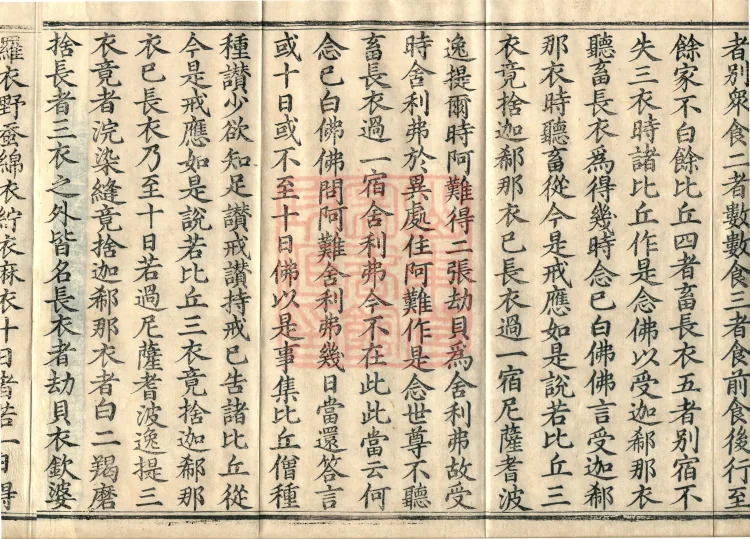 者別衆食二者數數食三者食前食後行至
餘家不白餘比丘四者畜長衣五者別宿不
失三衣時諸比丘作是念佛以受迦郗那衣
聽畜長衣爲得幾時念已白佛佛言受迦郗
那衣時聽畜從今是戒應如是說若比丘三
衣竟捨迦郗那衣已長衣過一宿尼薩耆波
逸提爾時阿難得二張劫貝爲舍利弗故受
時舍利弗於異處住阿難作是念世尊不聽
畜長衣過一宿舍利弗今不在此此當云何
念已白佛佛問阿難舍利弗幾日當還答言
或十日或不至十日佛以是事集比丘僧種
種讃少欲知足讃戒讃持戒已告諸比丘從
今是戒應如是說若比丘三衣竟捨迦郗那
衣已長衣乃至十日若過尼薩耆波逸提三
衣竟者浣染縫竟捨迦郗那衣者白二羯磨
捨長者三衣之外皆名長衣者劫貝衣欽婆
羅衣野蚕綿衣紵衣麻衣十日者若一日得